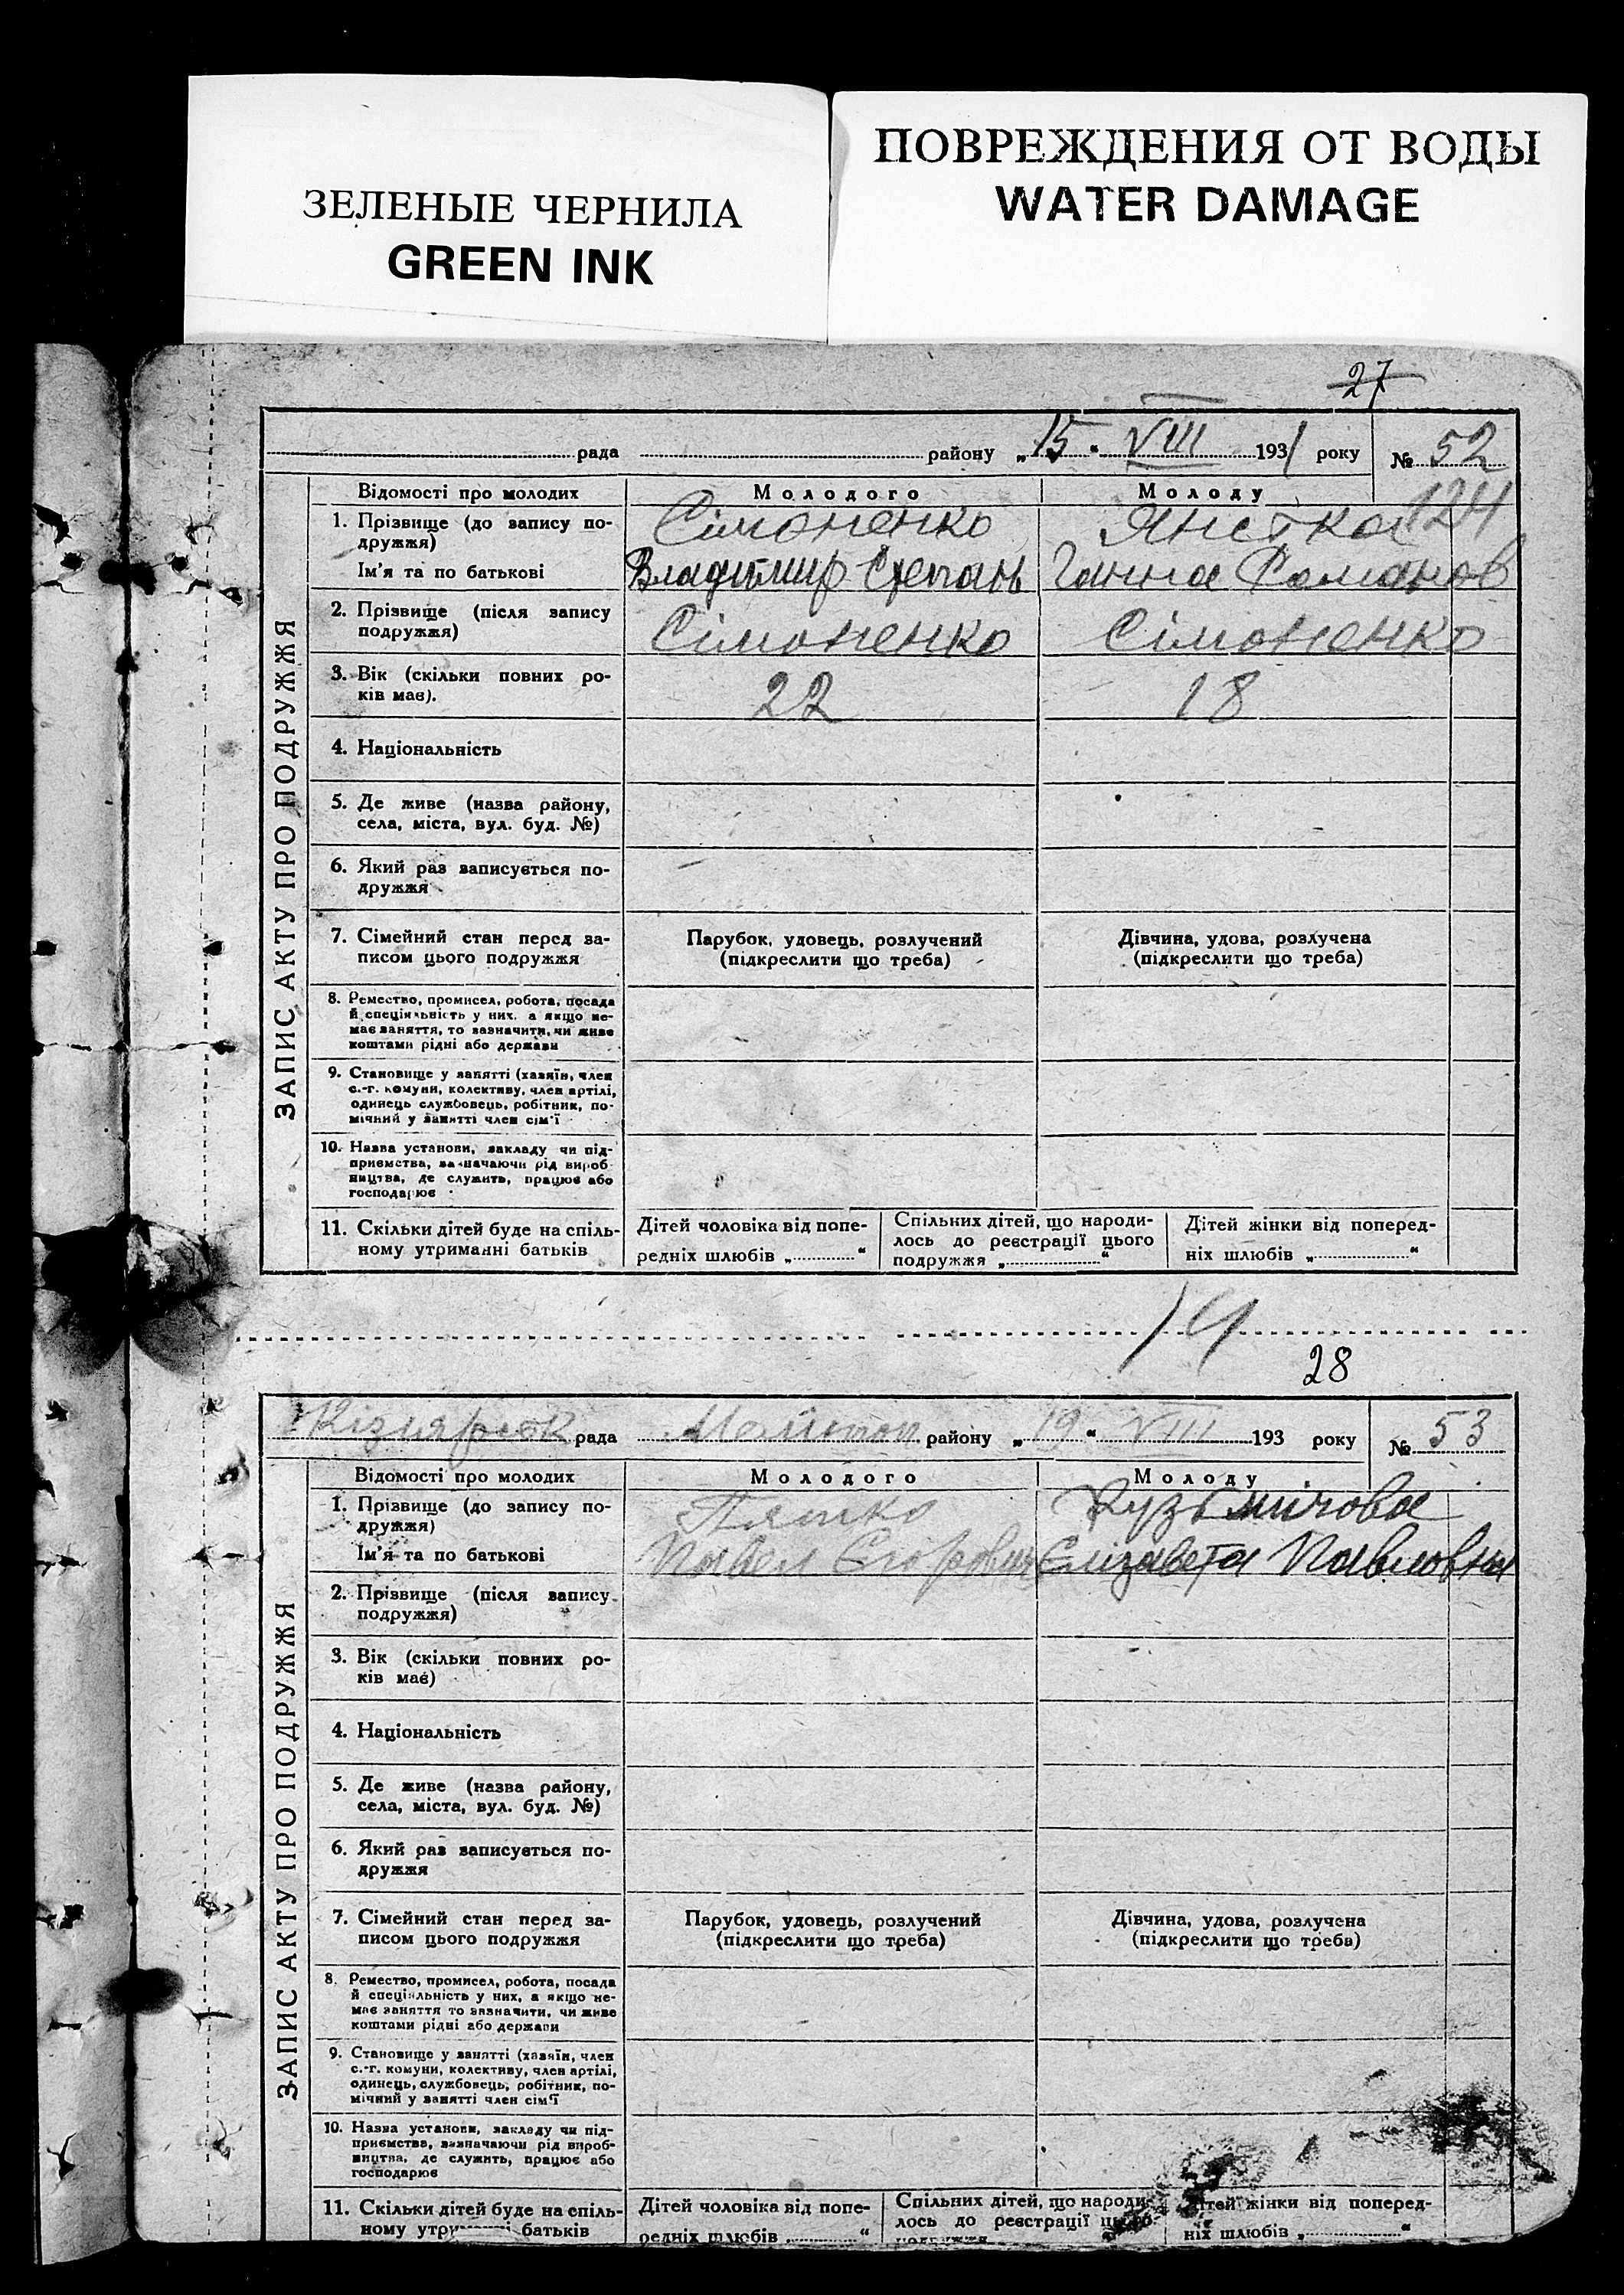 ЗЕЛЕНЫЕ ЧЕРНИЛА
GREEN INK
ПОВРЕЖДЕНИЯ ОТ ВОДЫ
WATER DAMAGE
27
рада району „15“ VIII 1931 року № 52
124
Відомості про молодих Молодого Молоду
1. Прізвище (до запису по- Сімоненко
дружжя)
Ім'я та по батькові Владимир Степан Ганна Романов
2. Прізвище (після запису Сімоненко Сімоненко
подружжя)
3. Вік (скільки повних ро- 22 18
ків має).
4. Національність
5. Де живе (назва району,
села, міста, вул. буд. №)
6. Який раз записується по-
дружжя
7. Сімейний стан перед за- Парубок, удовець, розлучений Дівчина, удова, розлучена
писом цього подружжя (підкреслити що треба) (підкреслити що треба)
8. Ремество, промисел, робота, посада
й спеціяльність у них, а якщо не-
має заняття, то зазначити, чи живе
коштами рідні або держави
9. Становище у занятті (хазяїн, член
с.-г. комуни, колективу, член артілі,
одинець службовець, робітник, по-
мічний у занятті член сім'ї
10. Назва установи, закладу чи під-
приємства, зазначаючи рід вироб-
ництва, де служить, працює або
господарює
11. Скільки дітей буде на спіль- Дітей чоловіка від попе- Спільних дітей, що народи- Дітей жінки від поперед-
ному утриманні батьків редніх шлюбів „ “ лось до реєстрації цього ніх шлюбів „ “
подружжя „ “
ЗАПИС АКТУ ПРО ПОДРУЖЖЯ
14
28
Кізіярськ рада Меліт

оп району „19“ VIII 193 року № 53
Відомості про молодих Молодого Молоду
1. Прізвище (до запису по- Кузьмічова
дружжя)
Ім'я та по батькові Павел Єгорович Єлізавета Павловна
2. Прізвище (після запису
подружжя)
3. Вік (скільки повних ро-
ків має)
4. Національність
5. Де живе (назва району,
села, міста, вул. буд. №)
6. Який раз записується по-
дружжя
7. Сімейний стан перед за- Парубок, удовець, розлучений Дівчина, удова, розлучена
писом цього подружжя (підкреслити що треба) (підкреслити що треба)
8. Ремество, промисел, робота, посада
й спеціяльність у них, а якщо не-
має заняття то зазначити, чи живе
коштами рідні або держави
9. Становище у занятті (хазяїн, член
с.-г. комуни, колективу, член артілі,
одинець, службовець, робітник, по-
мічний у занятті член сім'ї
10. Назва установи, закладу чи під-
приємства, зазначаючи рід вироб-
ництва, де служить, працює або
господарює
11. Скільки дітей буде на спіль- Дітей чоловіка від попе- Спільних дітей, що народи- Дітей жінки від поперед-
ному утриманні батьків редніх шлюбів „ “ лось до реєстрації цього ніх шлюбів „ “
подружжя
ЗАПИС АКТУ ПРО ПОДРУЖЖЯ